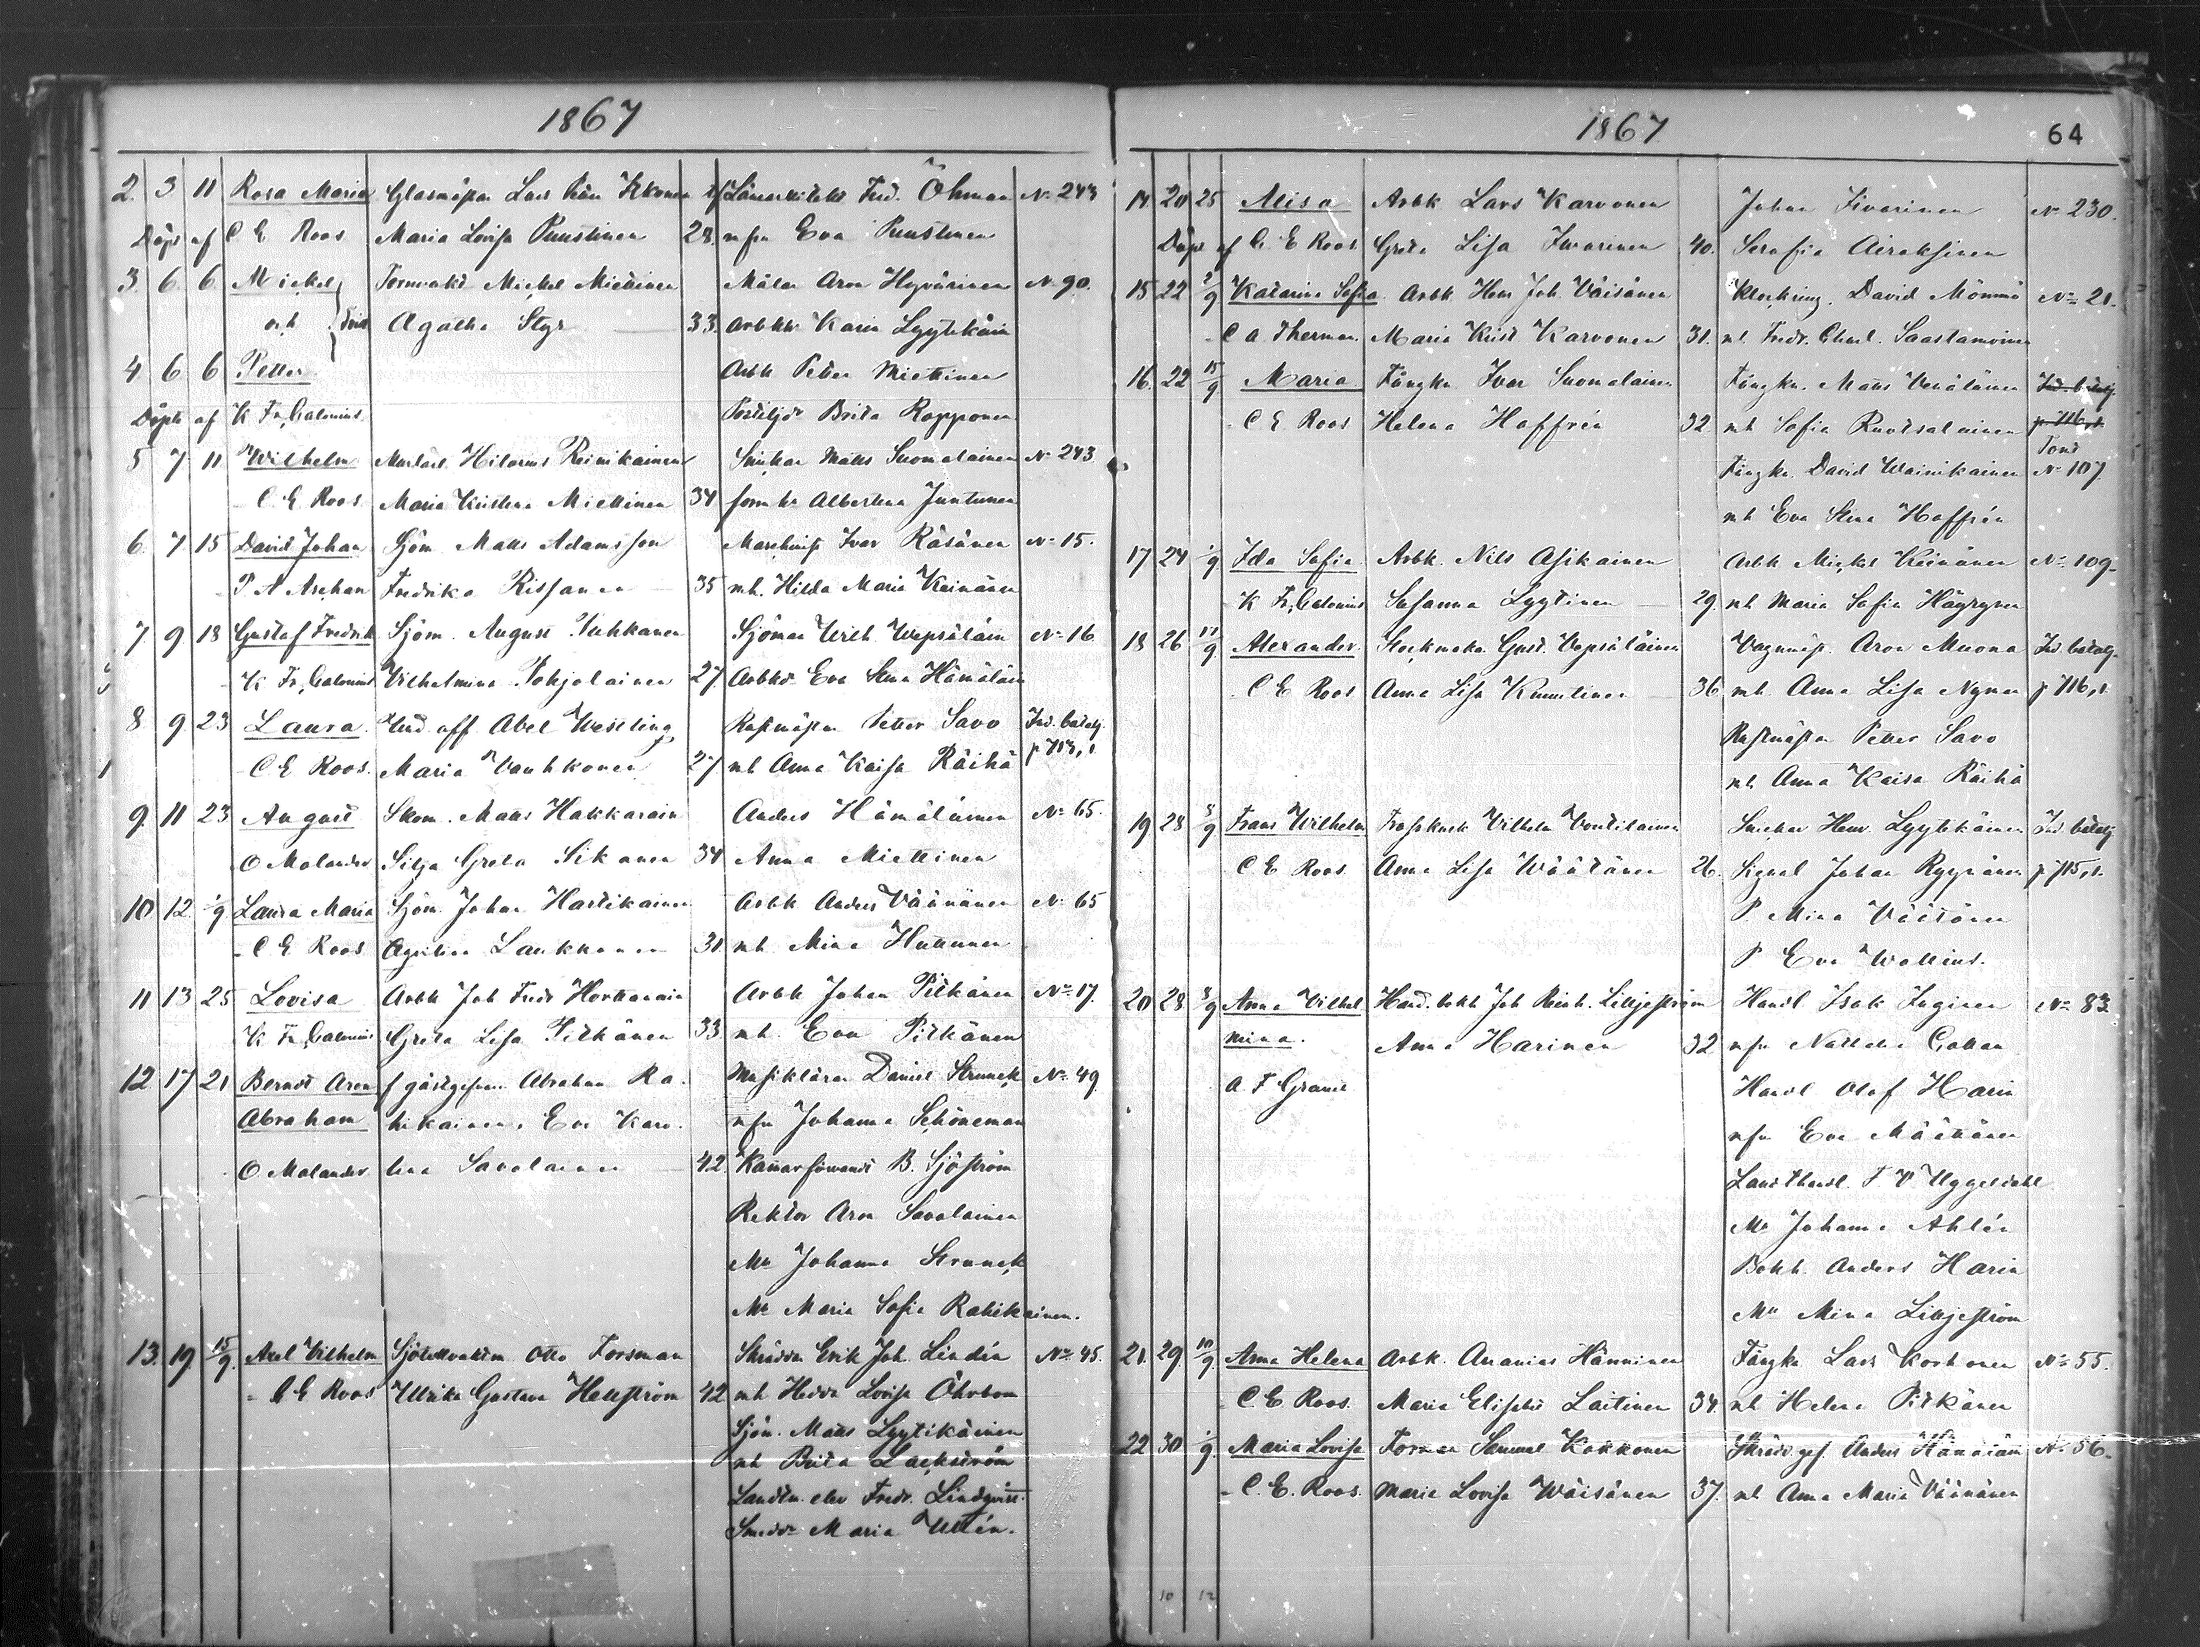 1867
2. 3 11 Rosa Maria Glasmäst Lars Johan Kokkonen Länsarkitekt Fred. Öhman No 243
Döpt af C E Roos Maria Lovisa Puustinen 28. u fru Eva Puustinen
3. 6. 6 Mickel Formakt Mickel Miettinen Målar Aron Hyvärinen No 90.
och Agatha Styf 33. Arbktr Karin Lyytikäin
4 6 6 Petter Arbk Peter Miettinen
Döpte af K Fr. Calonius Postiljdr Brita Ropponen
5 7 11 Wilhelm Murlärl. Hilarius Reinikainen Snickar Matts Suomalainen No 243
- C. E. Roos Maria Kristina Miettinen 34 Albertina Juntunen
6. 7 15 David Johan Sjöm Matts Adamsson Ivar Räsänen No 15.
- P A Aschan Fredrika Rissanen 35 mh. Hilda Maria Keinänen
7 9 18 Gustaf Fredrik Sjöm. August Puhkanen Sjöman Wilh Wepsäläin No 16
- K Fr. Calonius Vilhelmina Pohjolainen 27. Arbkdr Eva Stina Hämäläin
8. 9. 23 Laura Und off Abel Westling Peter Savo Ind. batalj.
- C E Roos. Maria Vauhkonen 27 mh Anna Kaisa Räihä p 713, 1
9. 11 23 August Skom. Mats Hakkarain Anders Hämäläinen No 65.
O Molander Silja Greta Sikanen 34 Anna Miettinen
10 12 1/9 Laura Maria Sjöm. Johan Hartikainen Arbk Anders Väänänen No 65
- C E Roos Laukkanen 31 mh Mina Huttunen
11 13 25 Lovisa Arbk Joh Fredr Hortanain Arbk Johan Pitkänen No 17.
K Fr. Calonius Greta Lisa Pitkänen 33 mh. Eva Pitkänen
12 17 21 Berndt Aron f gästgifvar Abraham Ra- Musiklärar Daniel Strunck No 49
Abraham hikainen, Eva Karo- u fru Johanna Schöneman
O Molander lina Savolainen 42 Kamarförvandt B. Sjöström
Rektor Aron Savolainen
Mll Johanna Strunck
Mll Maria Sofia Rahikainen.
13. 19 15/9. Axel Vilhelm Otto Forsman Skräddar Erik Joh. Lindén No 45.
- C E Roos Ulrika Gustava Hellström 42 mh Hedda Lovisa Öhrbom
Sjöm. Matts Lyytikäinen
mh Brita Lackström
Landtm. elev Fredr. Lindqvist
Maria Uttén.
1867 64
14 20 25 Alisa Arbk Lars Karvonen Johan Iivarinen No 230.
Döpt af C E Roos Greta Lisa Iivarinen 40. Serafia Airaksinen
15 22 2/9 Katarina Sofia Arbk Henr Joh. Väisänen Klockring. David Mömmö No 21.
- C A Therman. Maria Krist Karvonen 31. mh. Fredr. Charl. Saastamoinen
16. 22 15/9 Maria Fångkn. Ivar Suomalainen Fångkn. Mats Venäläinen Ind. batalj.
- C E Roos Helena Hoffrén 32 mh Sofia Ruotsalainen p 716, 1
Fångkn. David Wainikainen No 107
mh Eva Stina Hoffrén
17 24 1/9 Ida Sofia Arbk. Nils Asikainen Arbk Mickel Keinänen No 109.
- K Fr. Calonius Susanna Lyytinen 29. mh Maria Sofia Häyrynen
18 26 17/9 Alexander Stockmaka. Gust. Vepsäläinen Vagnmäst. Aron Muona Ind batalj.
- C E Roos Anna Lisa Kinnunen 36 mh Anna Lisa Nyman p 716, 1
Peter Savo
mh Anna Kaisa Räihä
19 28 8/9 Frans Wilhelm Trosskusk Vilhelm Voutilainen Snickar Henr. Lyytikäinen Ind batalj
C E Roos Anna Lisa Wäätäinen 26. Signal Johan Ryynänen p 715, 1.
P Mina Väätänen
P Eva Wallius.
20 28 8/9 Anna Vilhel Hand. bokh Joh Reinh. Liljeström Handl Isak Inginen No 83
mina. Anna Harinen 32 u fru Natalia Collan
A. F Granit Handl Olof Harin
u fru Eva Määttänen
Landthandl. F V Uggeldahl
Mll Johanna Ahlén
Bokh. Anders Harin
Mll Mina Liljeström
21. 29 10/9 Anna Helena Arbk. Ananias Hänninen Fångkn Lars Korhonen No 55.
- C. E Roos. Maria Elisabet Laitinen 34. mh Helena Pitkänen
22 30 1/9. Maria Lovisa Forman Samuel Kokkonen Skrädd.ges. Anders Hämäläin No 56.
- C. E. Roos. Maria Lovisa Wäisänen 37. mh Anna Maria Väänänen
10 12